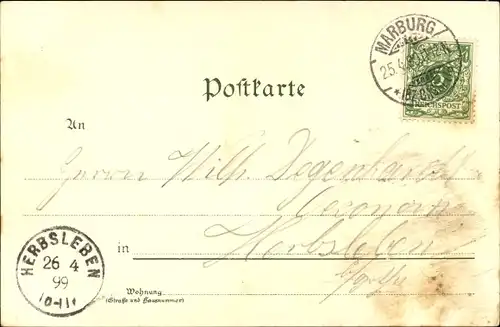 MARBURG
25.4.
5
REICHSPOST
Postkarte
An
Herrn Wilh. Degenhardt
Oeconom
in Herbsleben
b/Gotha
HERBSLEBEN
26 4
99
10-11V
Wohnung
(Straße und Hausnummer)